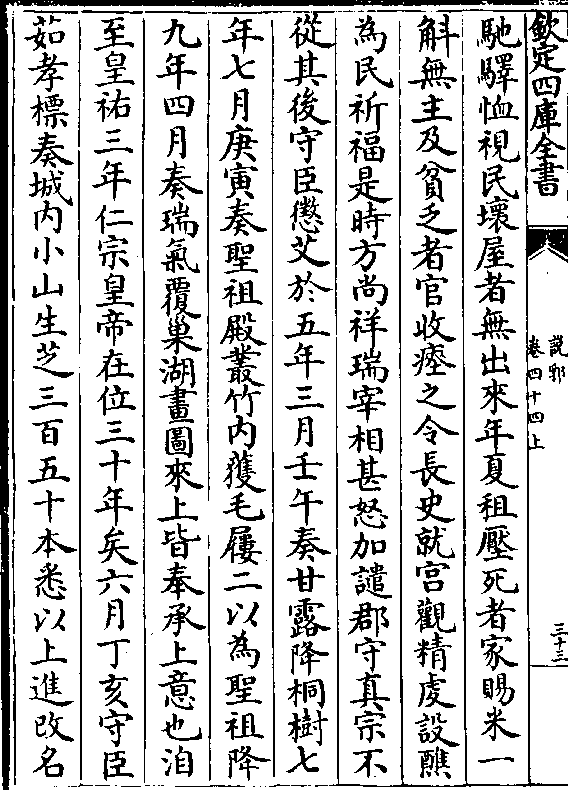 欽定四庫全書
說郛
卷四十四上
三十三
馳驛恤視民壞屋者無出來年夏租壓死者家賜米一
斛無主及貧乏者官收瘞之令長史就宫觀精䖍設醮
為民祈福是時方尚祥瑞宰相甚怒加譴郡守真宗不
從其後守臣懲艾於五年三月壬午奏甘露降桐樹七
年七月庚寅奏聖祖殿叢竹内獲毛屨二以為聖祖降
九年四月奏瑞氣覆巢湖畫圖來上皆奉承上意也洎
至皇祐三年仁宗皇帝在位三十年矣六月丁亥守臣
茹孝標奏城内小山生芝三百五十本悉以上進改名